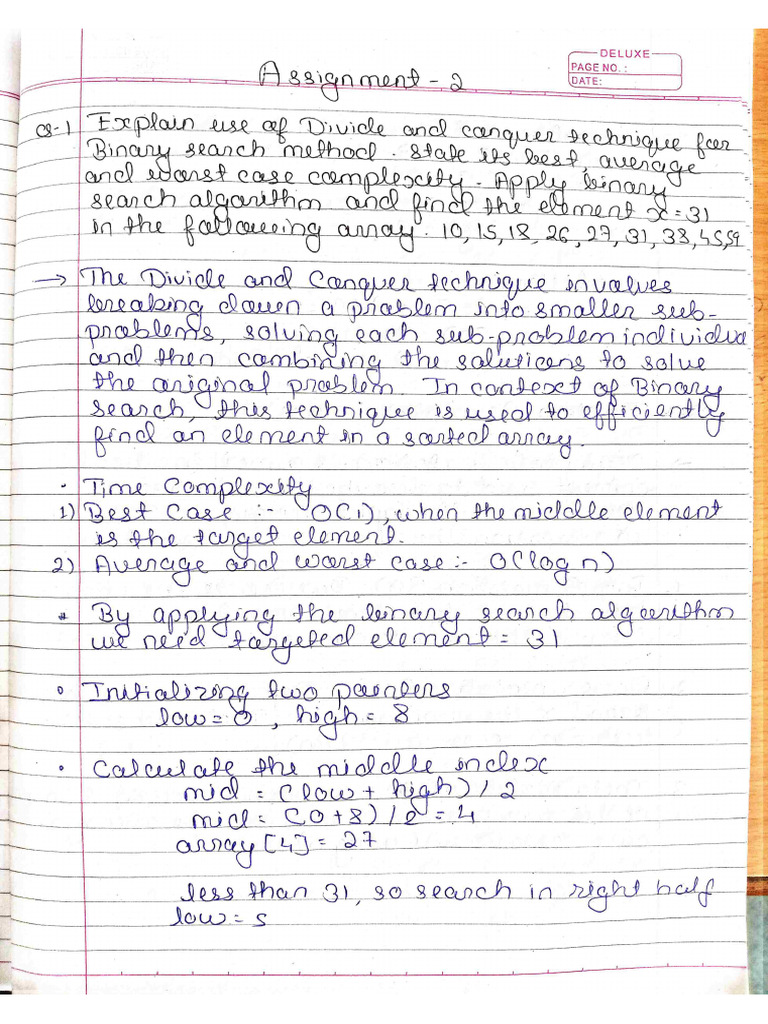 DELUXE
PAGE NO. :
DATE:
Assignment - 2
Q-1 Explain use of Divide and conquer technique for
Binary search method. State its best, average
and worst case complexity. Apply binary
search algorithm and find the element x = 31
in the following array. 10, 15, 18, 26, 27, 31, 38, 45, 59
→ The Divide and Conquer technique involves
breaking down a problem into smaller sub-
problems, solving each sub-problem individua
and then combining the solutions to solve
the original problem. In context of Binary
search, this technique is used to efficiently
find an element in a sorted array.
• Time Complexity
1) Best Case :- O(1), when the middle element
is the target element.
2) Average and worst case :- O(log n)
* By applying the binary search algorithm
we need targeted element = 31
• Initializing two pointers
low = 0 , high = 8
• Calculate the middle index
mid = (low + high) / 2
mid = (0+8) / 2 = 4
array [4] = 27
less than 31, so search in right half
low = 5